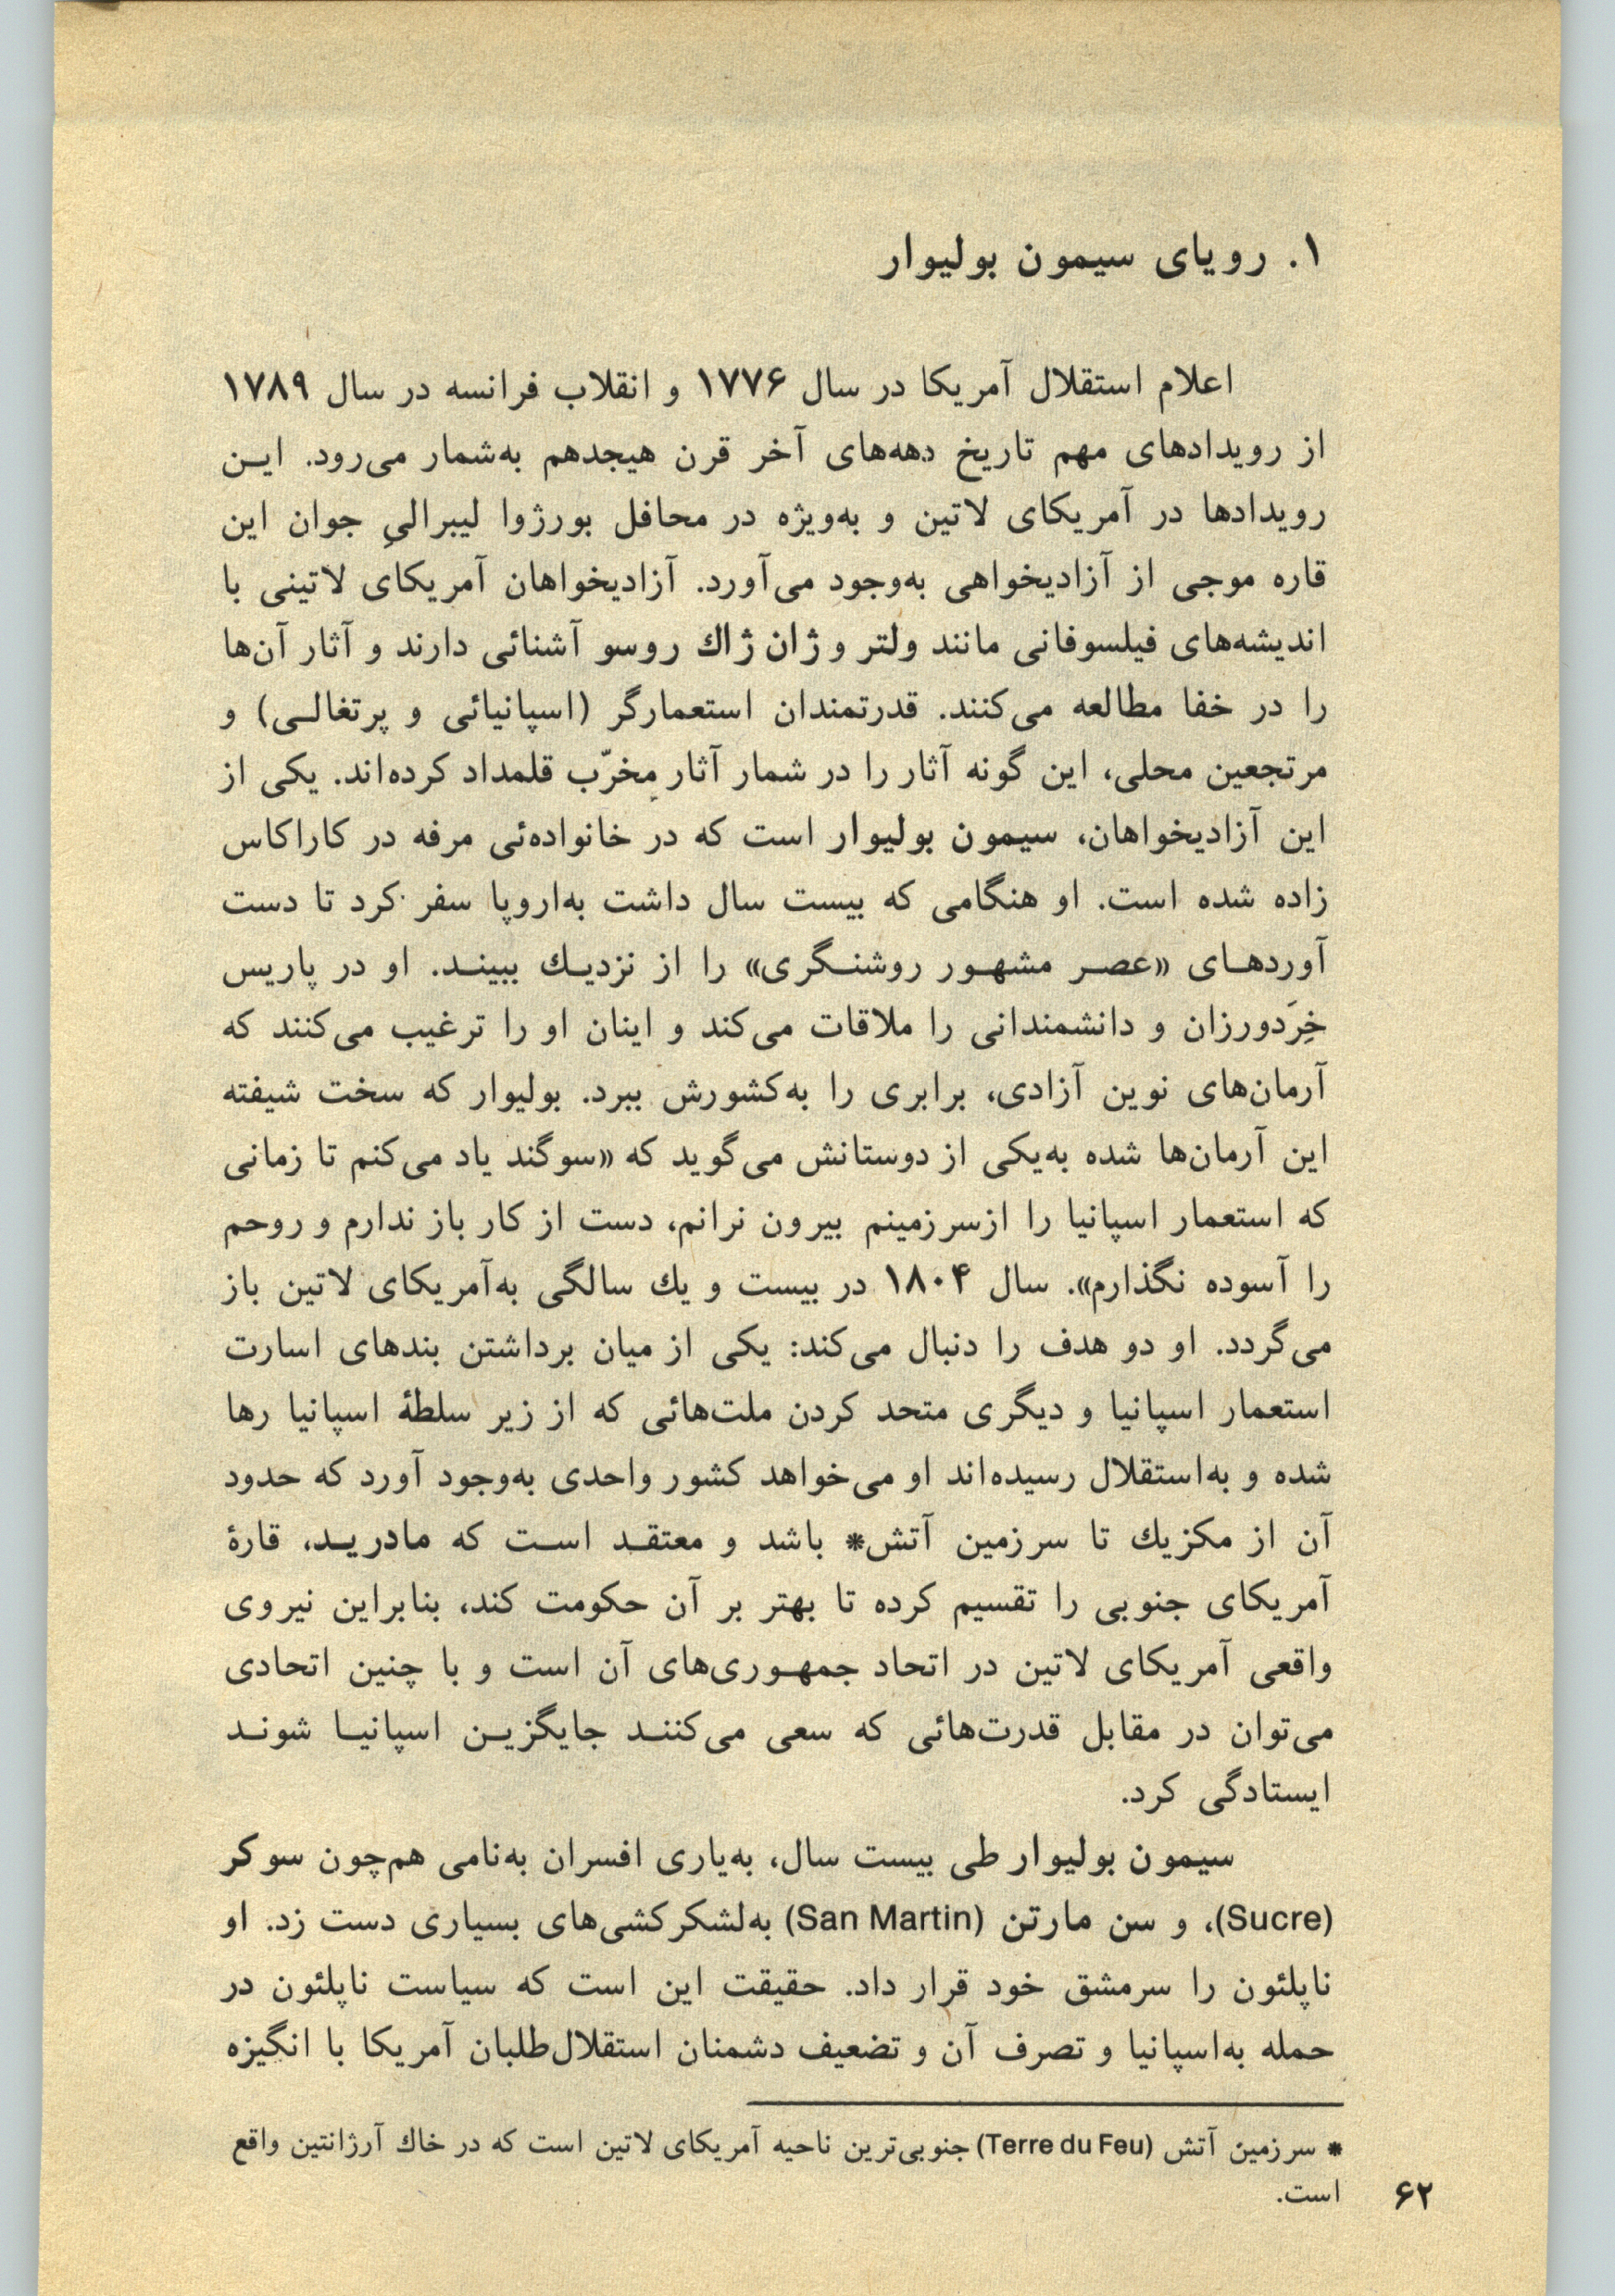 ۱. رویای سیمون بولیوار
اعلام استقلال آمریکا در سال ۱۷۷۶ و انقلاب فرانسه در سال ۱۷۸۹
از رویدادهای مهم تاریخ دهه‌های آخر قرن هیجدهم به‌شمار می‌رود. ایـن
رویدادها در آمریکای لاتین و به‌ویژه در محافل بورژوا لیبرالیِ جوان این
قاره موجی از آزادیخواهی به‌وجود می‌آورد. آزادیخواهان آمریکای لاتینی با
اندیشه‌های فیلسوفانی مانند ولتر و ژان ژاك روسو آشنائی دارند و آثار آن‌ها
را در خفا مطالعه می‌کنند. قدرتمندان استعمارگر (اسپانیائی و پرتغالـی) و
مرتجعین محلی، این گونه آثار را در شمار آثار مخرّب قلمداد کرده‌اند. یکی از
این آزادیخواهان، سیمون بولیوار است که در خانواده‌ئی مرفه در کاراکاس
زاده شده است. او هنگامی که بیست سال داشت به‌اروپا سفر کرد تا دست
آوردهـای «عصـر مشهـور روشنـگری» را از نزدیـك ببینـد. او در پاریس
خِرَدورزان و دانشمندانی را ملاقات می‌کند و اینان او را ترغیب می‌کنند که
آرمان‌های نوین آزادی، برابری را به‌کشورش ببرد. بولیوار که سخت شیفته
این آرمان‌ها شده به‌یکی از دوستانش می‌گوید که «سوگند یاد می‌کنم تا زمانی
که استعمار اسپانیا را ازسرزمینم بیرون نرانم، دست از کار باز ندارم و روحم
را آسوده نگذارم». سال ۱۸۰۴ در بیست و یك سالگی به‌آمریکای لاتین باز
می‌گردد. او دو هدف را دنبال می‌کند: یکی از میان برداشتن بندهای اسارت
استعمار اسپانیا و دیگری متحد کردن ملت‌هائی که از زیر سلطهٔ اسپانیا رها
شده و به‌استقلال رسیده‌اند او می‌خواهد کشور واحدی به‌وجود آورد که حدود
آن از مکزیك تا سرزمین آتش* باشد و معتقـد اسـت که مادریـد، قارهٔ
آمریکای جنوبی را تقسیم کرده تا بهتر بر آن حکومت کند، بنابراین نیروی
واقعی آمریکای لاتین در اتحاد جمهـوری‌های آن است و با چنین اتحادی
می‌توان در مقابل قدرت‌هائی که سعی می‌کننـد جایگزیـن اسپانیـا شونـد
ایستادگی کرد.
سیمون بولیوار طی بیست سال، به‌یاری افسران به‌نامی هم‌چون سوکر
(Sucre)، و سن مارتن (San Martin) به‌لشکرکشی‌های بسیاری دست زد. او
ناپلئون را سرمشق خود قرار داد. حقیقت این است که سیاست ناپلئون در
حمله به‌اسپانیا و تصرف آن و تضعیف دشمنان استقلال‌طلبان آمریکا با انگیزه
* سرزمین آتش (Terre du Feu) جنوبی‌ترین ناحیه آمریکای لاتین است که در خاك آرژانتین واقع
است.
۶۲